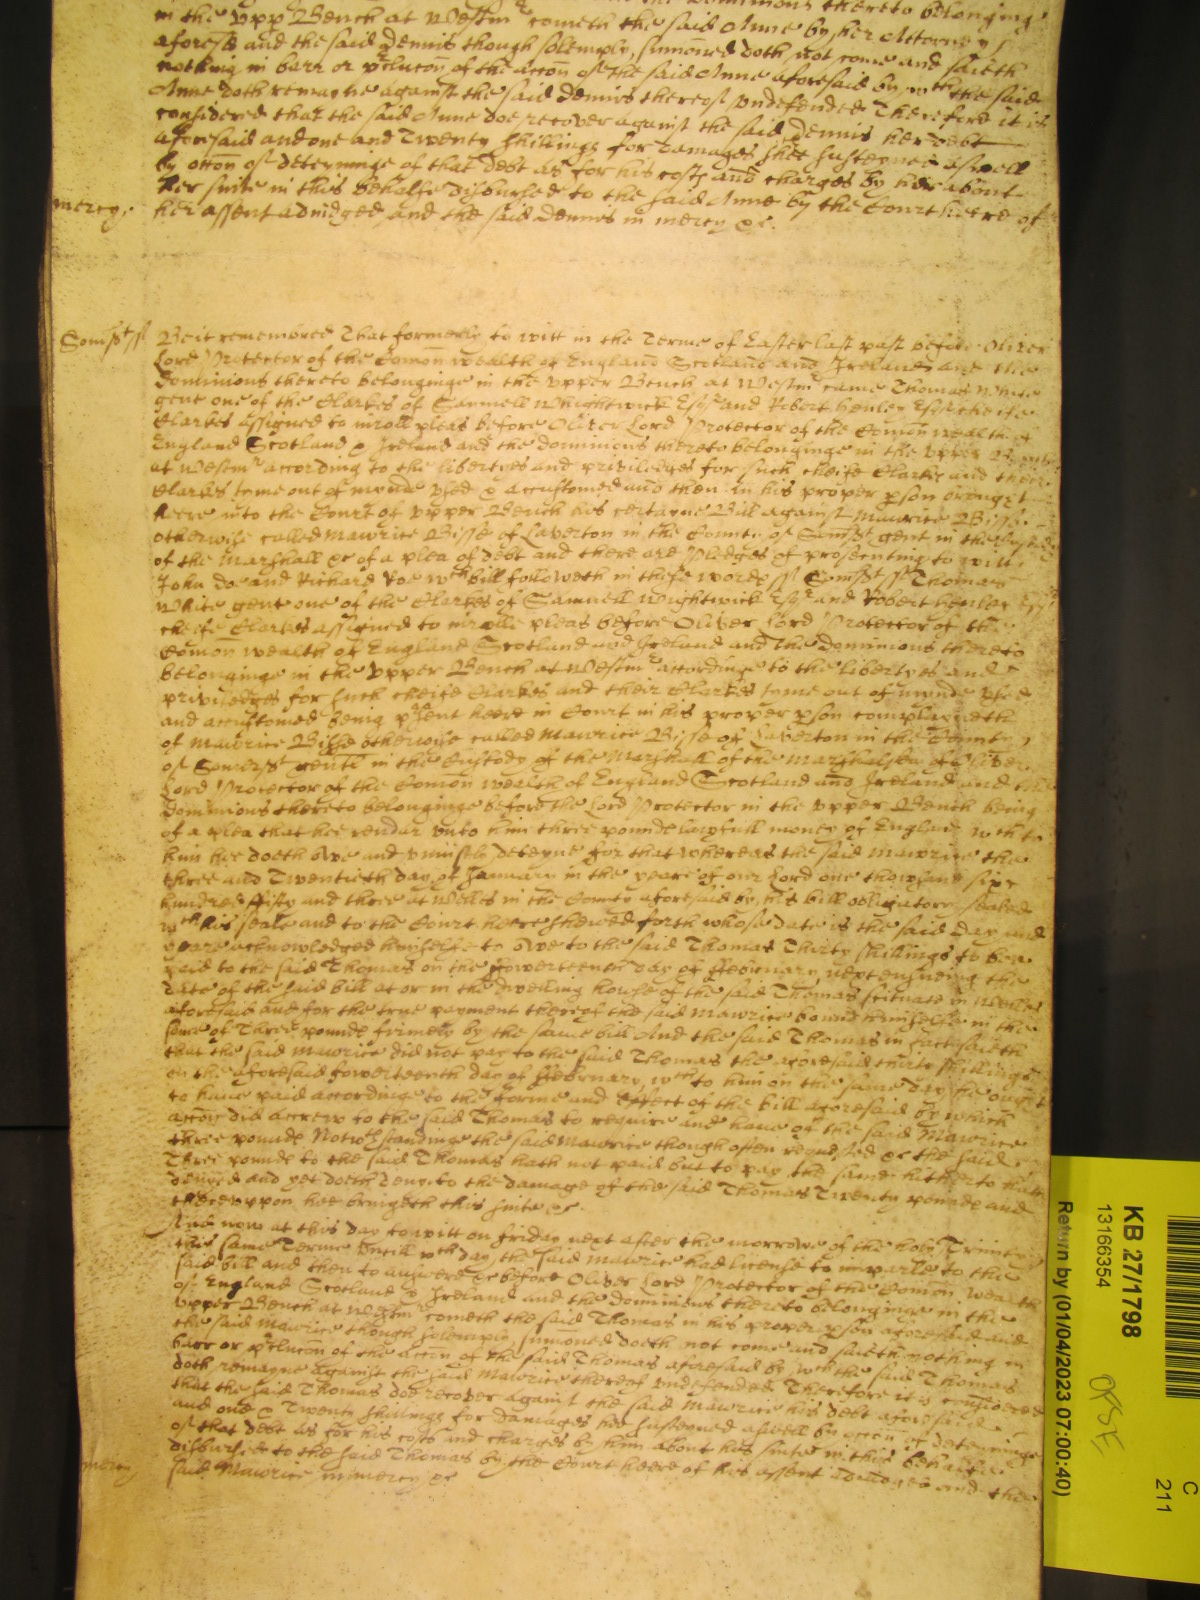 the Dominions thereto belonging
in the vpp Bench at Westmr cometh the said Anne by her Attorney
aforesd and the said Dennis though solemply sumoned doth not come and saieth
nothing in barr or pclucon of the accon of the said Anne aforesaid by wch the said
Anne doth remayne against the said Dennis thereof vndefended Therefore it is
considered that the said Anne doe recover against the said Dennis her debt
aforesaid and one and Twenty shillings for damages shee susteyned aswell
by occon of deteyninge of that debt as for his costs and charges by her about
her suite in this behalfe disbursed to the said Anne by the Court heere of
mercy. her assent adiudged and the said Dennis in mercy &c.
Somst ss Be it remembred That formerly to witt in the Terme of Easter last past before Oliver
Lord Protector of the Comon wealth of England Scotland and Ireland and the
Dominions thereto belonginge in the vpper Bench at Westmr came Thomas White
gent one of the Clarkes of Samuell Whightwick Esqr and Robert Henley Esqr cheife
Clarkes assigned to inroll pleas before Oliver Lord Protector of the Comon wealth of
England Scotland & Ireland and the Dominions thereto belonginge in the vpper Bench
at Westmr according to the libertyes and priviledges for such cheife Clarkes and their
Clarkes tyme out of mynde vsed & accustomed and then in his proper pson brought
heere into the Court of vpper Bench his certayne Bill against Maurice Bisse
otherwise called Maurice Bisse of Laverton in the County of Somst gent in the Custody
of the Marshall &c of a plea of debt and there are Pledges of prosecuting to witt
John Doe and Richard Roe wch bill followeth in these words ss Somst ss Thomas
White gent one of the Clarkes of Samuell Wightwick Esqr and Robert Henley Esqr
cheife Clarkes assigned to inrolle pleas before Oliver Lord Protector of the
Comon wealth of England Scotland and Ireland and the Dominions thereto
belonginge in the vpper Bench at Westmr accordinge to the libertyes and
priviledges for such cheife Clarkes and their Clarkes tyme out of mynde vsed
and accustomed being psent heere in Court in his proper pson complayneth
of Maurice Bisse otherwise called Maurice Bisse of Laverton in the County
of Somerst gent in the Custody of the Marshall of the Marshalsea of Oliver
Lord Protector of the Comon wealth of England Scotland and Ireland and the
Dominions thereto belonginge before the Lord Protector in the vpper Bench being
of a plea that hee render vnto him three pounde lawfull money of England wch to
him hee doeth owe and vniustly deteyne for that whereas the said Maurice the
three and Twentieth day of January in the yeare of our Lord one thowsand six
hundred fifty and three at Welles in the County aforesaid by his bill obligatory sealed
wth his seale and to the Court heere shewed forth whose date is the said day and
yeare acknowledged himselfe to owe to the said Thomas Thirty shillings to bee
paid to the said Thomas on the fowerteenth day of ffebruary next ensueing the
date of the said bill at or in the dwelling howse of the said Thomas scituate in Welles
aforesaid and for the true payment thereof the said Maurice bound himselfe in the
some of Three pounde firmely by the same bill And the said Thomas in fact saieth
that the said Maurice did not pay to the said Thomas the aforesaid thirty shillings
on the aforesaid fowerteenth day of ffebruary wch to him on the same day he ought
to haue paid accordinge to the forme and effect of the bill aforesaid by which
accon did accrew to the said Thomas to require and haue of the said Maurice
three pounde Notwthstandinge the said Maurice though often requested &c the said
Three pounde to the said Thomas hath not paid but to pay the same hitherto hath
denyed and yet doeth deny to the damage of the said Thomas Twenty pounde and
therevppon hee bringeth this suite &c.
And now at this day to witt on friday next after the morrowe of the holy Trinity
this same Terme vntill wch day the said Maurice had license to imparle to the
said bill and then to answere &c before Oliver Lord Protector of the Comon wealth
of England Scotland & Ireland and the Dominions thereto belonginge in the
vpper Bench at Westmr cometh the said Thomas in his proper pson aforesaid and
the said Maurice though solemply sumoned doeth not come and saieth nothing in
barr or pclucon of the accon of the said Thomas aforesaid by wch the said Thomas
doth remayne against the said Maurice thereof vndefended Therefore it is considered
that the said Thomas doe recover against the said Maurice his debt aforesaid
and one & Twenty shillings for damages hee susteyned aswell by occon of deteyninge
of that debt as for his costs and charges by him about his suite in this behalfe
disbursed to the said Thomas by the Court heere of his assent adiudged and the
mercy said Maurice in mercy &c
KB 27/1798
13166354
Return by (01/04/2023 07:00:40)
C
211